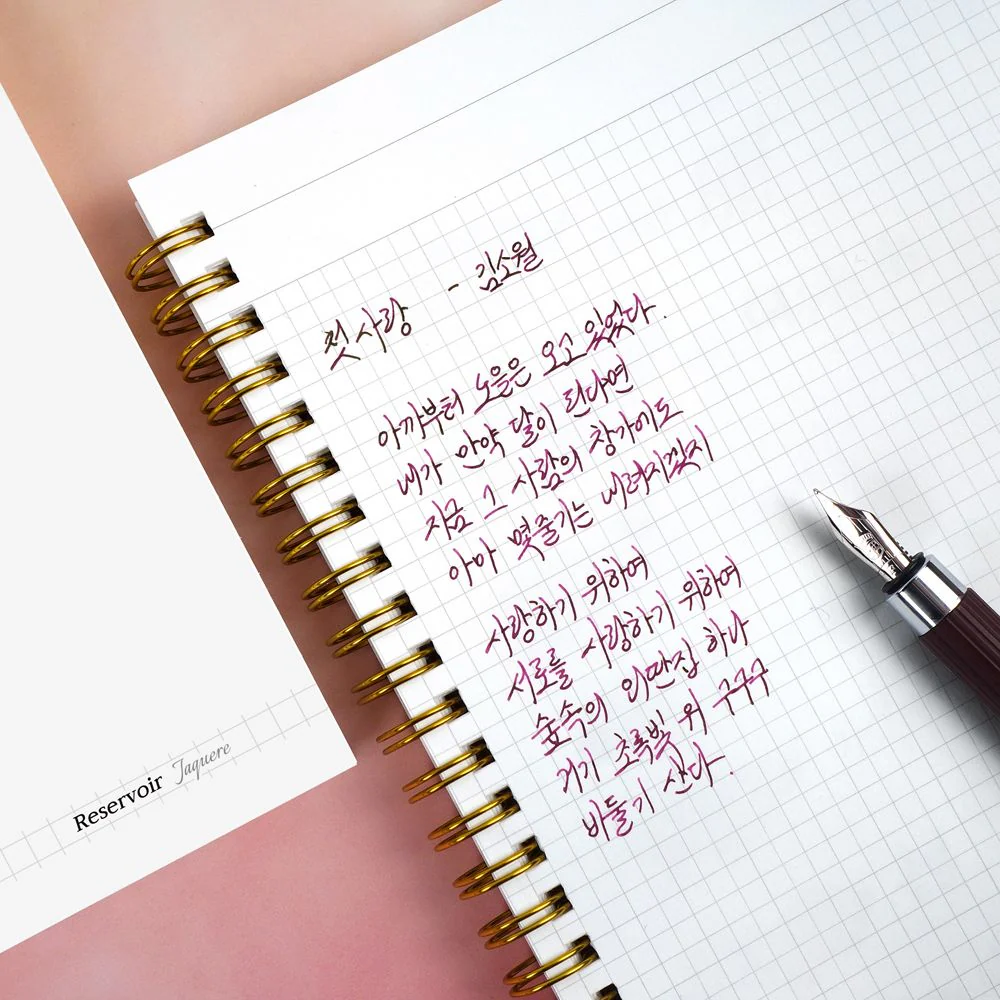 첫사랑 - 김소월
아까부터 노을은 오고 있었다.
내가 만약 달이 된다면
지금 그 사람의 창가에도
아마 몇줄기는 내려지겠지
사랑하기 위하여
서로를 사랑하기 위하여
숲속의 외딴집 하나
거기 초록빛 위 구구구
비둘기 산다.
Reservoir Jaquere